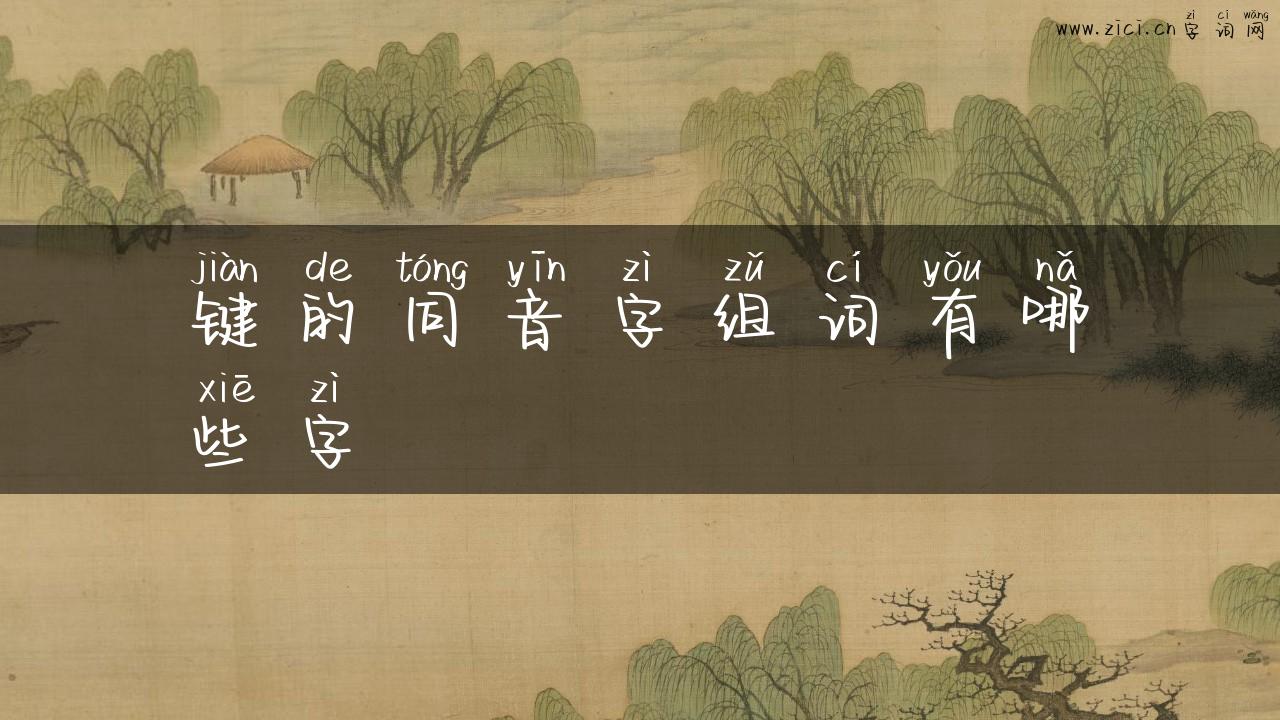 zì cí wǎng
www.zici.cn 字词网
jiàn de tóng yīn zì zǔ cí yǒu nǎ
键的同音字组词有哪
xiē zì
些字